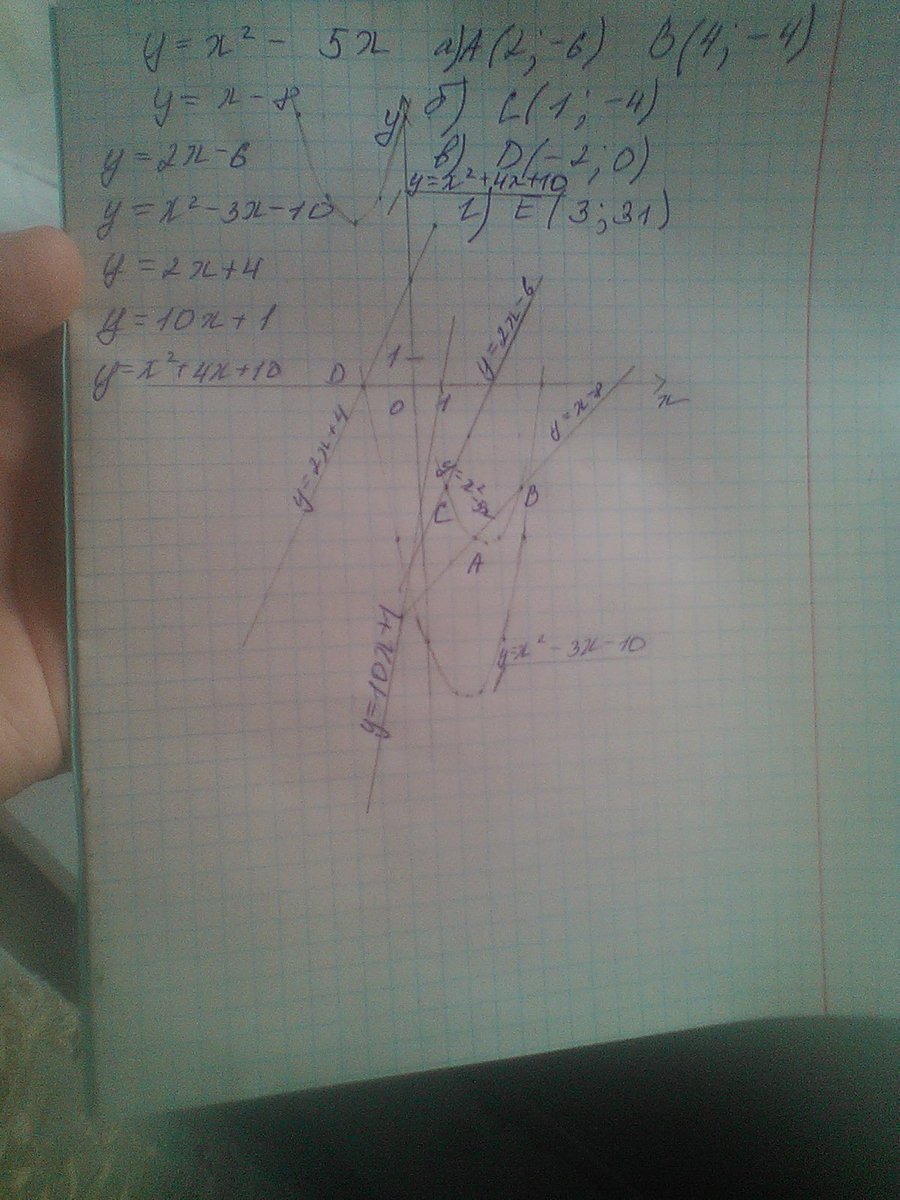 y = x² - 5x а) A(2; -6) B(4; -4)
y = x - 8 y б) C(1; -4)
y = 2x - 6 в) D(-2; 0)
y = x² + 4x + 10
y = x² - 3x - 10 г) E(3; 31)
y = 2x + 4
y = 10x + 1
y = x² + 4x + 10 D 1
0 1 x
y = 2x + 4
y = 2x - 6
y = x - 8
y = x² - 5x
C B
A
y = 10x + 1
y = x² - 3x - 10